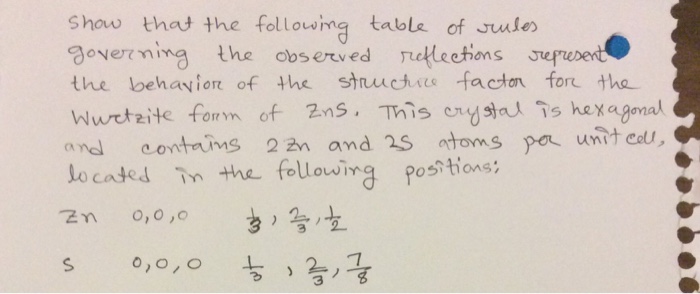 Show that the following table of rules
governing the observed reflections represent
the behavior of the structure factor for the
Wurtzite form of ZnS. This crystal is hexagonal
and contains 2 Zn and 2S atoms per unit cell,
located in the following positions;
Zn 0,0,0 1/3, 2/3, 1/2
S 0,0,0 1/3, 2/3, 7/8